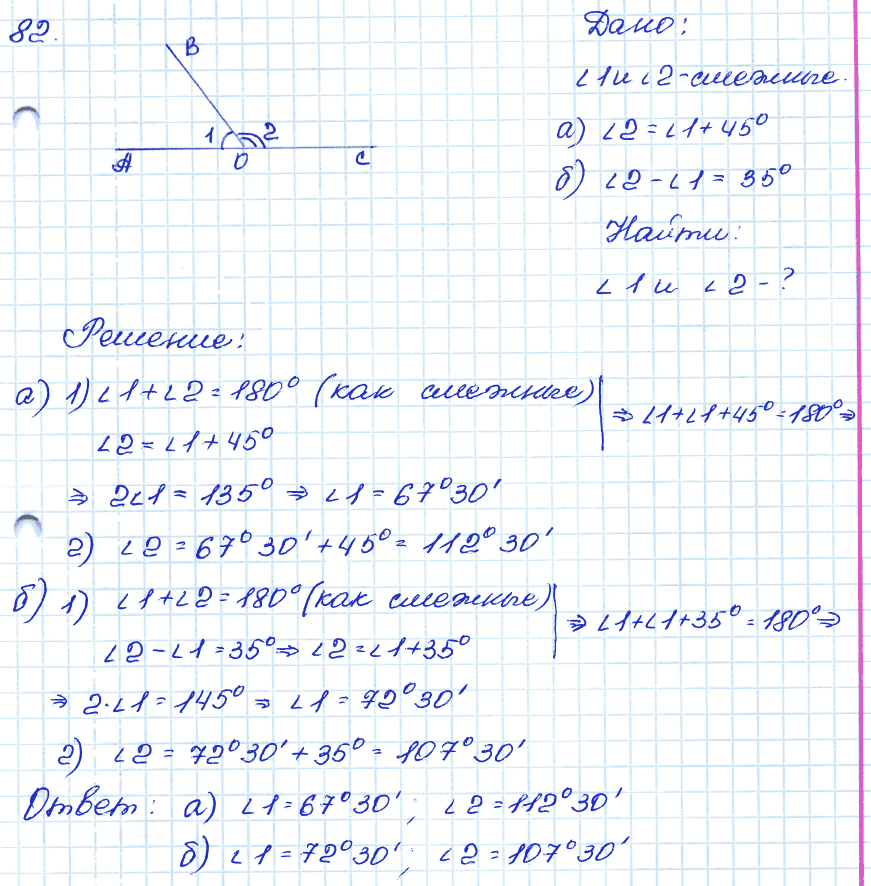 82.
B
1 2
A O C
Дано:
∠1 и ∠2 - смежные.
а) ∠2 = ∠1 + 45°
б) ∠2 - ∠1 = 35°
Найти:
∠1 и ∠2 - ?
Решение:
а) 1) ∠1 + ∠2 = 180° (как смежные) ⇒ ∠1 + ∠1 + 45° = 180° ⇒
∠2 = ∠1 + 45°
⇒ 2∠1 = 135° ⇒ ∠1 = 67°30'
2) ∠2 = 67°30' + 45° = 112°30'
б) 1) ∠1 + ∠2 = 180° (как смежные) ⇒ ∠1 + ∠1 + 35° = 180° ⇒
∠2 - ∠1 = 35° ⇒ ∠2 = ∠1 + 35°
⇒ 2·∠1 = 145° ⇒ ∠1 = 72°30'
2) ∠2 = 72°30' + 35° = 107°30'
Ответ: а) ∠1 = 67°30'; ∠2 = 112°30'
б) ∠1 = 72°30'; ∠2 = 107°30'